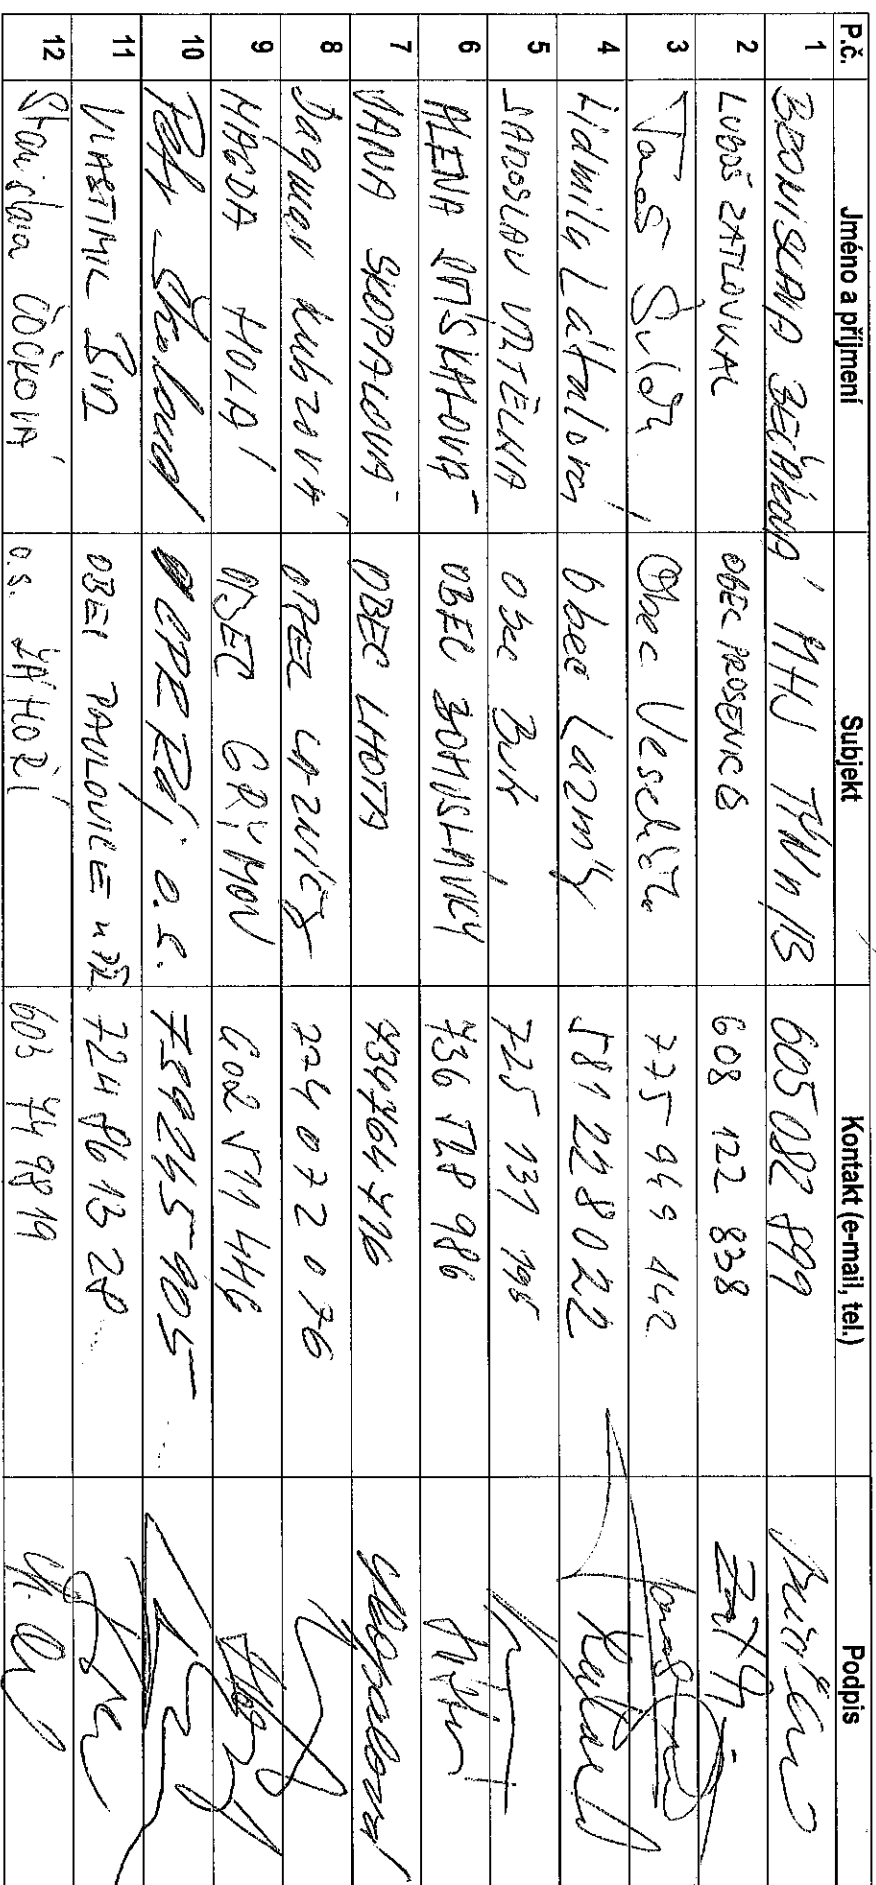 P.č. Jméno a příjmení Subjekt Kontakt (e-mail, tel.) Podpis
1 BRONISLAVA BEČÁKOVÁ MHJ TÝN n/B 605 082 899
2 LUBOŠ ZATLOUKAL OBEC PROSENICE 608 122 838
3 Tomáš Šulák Obec Veselíčko 775 949 442
4 Lidmila Látalová Obec Lazníky 581 228 022
5 JAROSLAV VRTĚLKA Obec Buk 725 131 198
6 ALENA OBEC BOHUSLÁVKY 736 528 986
7 JANA SKOPALOVÁ OBEC LHOTA 734764716 Skopalová
8 Dagmar OBEC LAZNIČKY 274 072 076
9 MAGDA HOLÁ OBEC GRYMOV 602 511 446
10 Petr Školoud o.s. 739245905
11 VLASTIMIL BIA OBEC PAVLOVICE u Př. 724 86 13 28
12 Stanislava ČOČKOVÁ o.s. ZÁHOŘÍ 603 449819